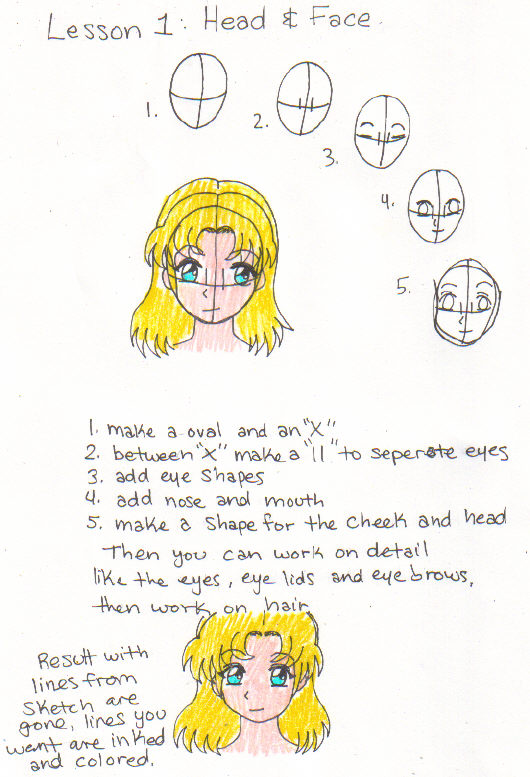 Lesson 1: Head & Face.
1.
2.
3.
4.
5.
1. make a oval and an "X"
2. between "X" make a "11" to seperate eyes
3. add eye shapes
4. add nose and mouth
5. make a shape for the cheek and head
Then you can work on detail
like the eyes, eye lids and eye brows,
then work on hair
Result with
lines from
sketch are
gone, lines you
want are inked
and colored.